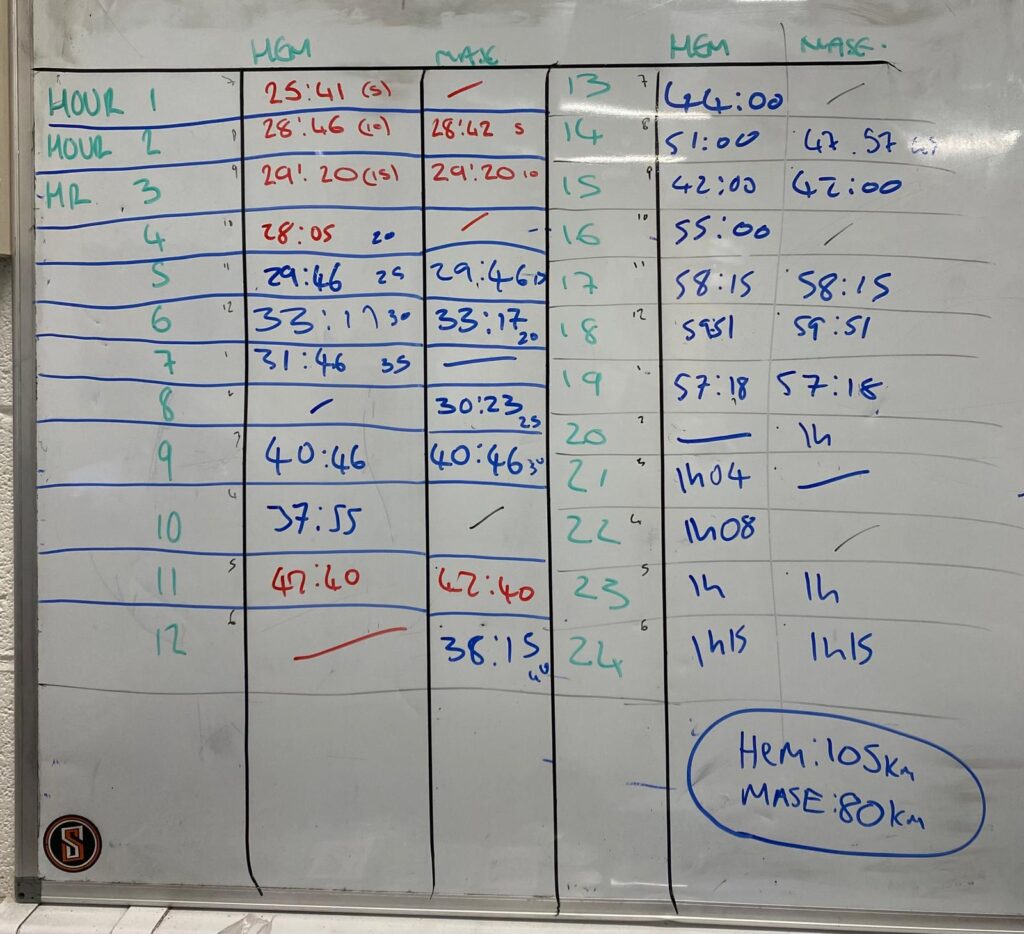 HEM MASE HEM MASE.
HOUR 1 7 25:41 (5) / 13 7 44:00 /
HOUR 2 8 28:46 (10) 28:42 5 14 8 51:00 47.57
HR 3 9 29:20 (15) 29:20 10 15 9 42:00 42:00
4 10 28:05 20 / 16 10 55:00 /
5 11 29:46 25 29:46 15 17 11 58:15 58:15
6 12 33:17 30 33:17 20 18 12 5951 59:51
7 1 31:46 35 — 19 1 57:18 57:18
8 2 / 30:23 25 20 2 — 1h
9 3 40:46 40:46 30 21 3 1h04 —
10 4 37:55 / 22 4 1h08 /
11 5 42:40 23 5 1h 1h
12 6 / 38:15 40 24 6 1h15 1h15
Hem:105km
MASE:80km
S